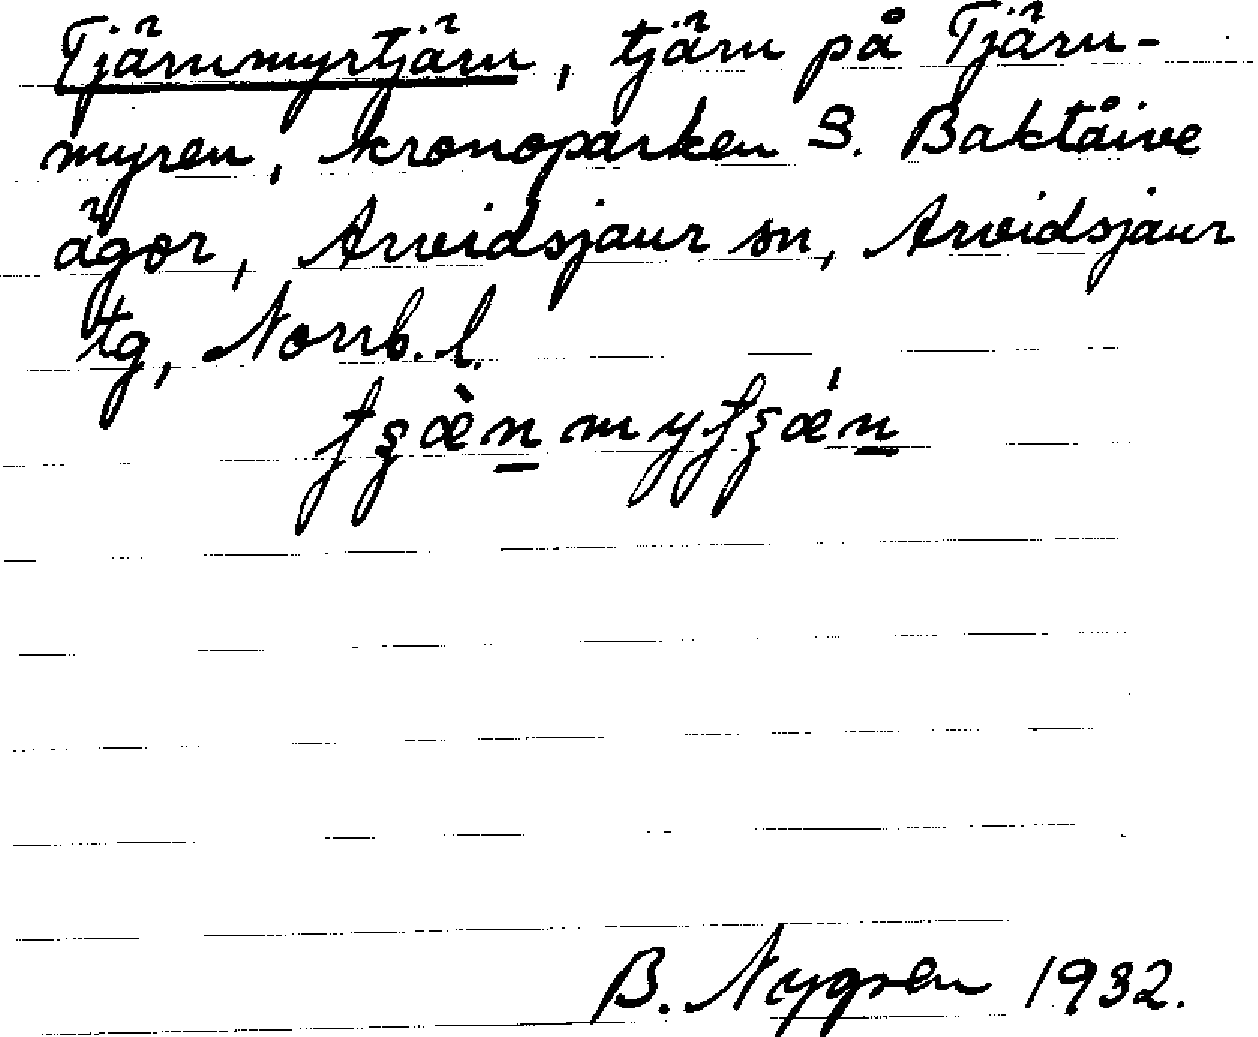 Tjärnmyrtjärn, tjärn på Tjärn-
myren, kronoparken S. Baktåive
ägor, Arvidsjaur sn, Arvidsjaur
tg, Norrb. l.
B. Nygren 1932.